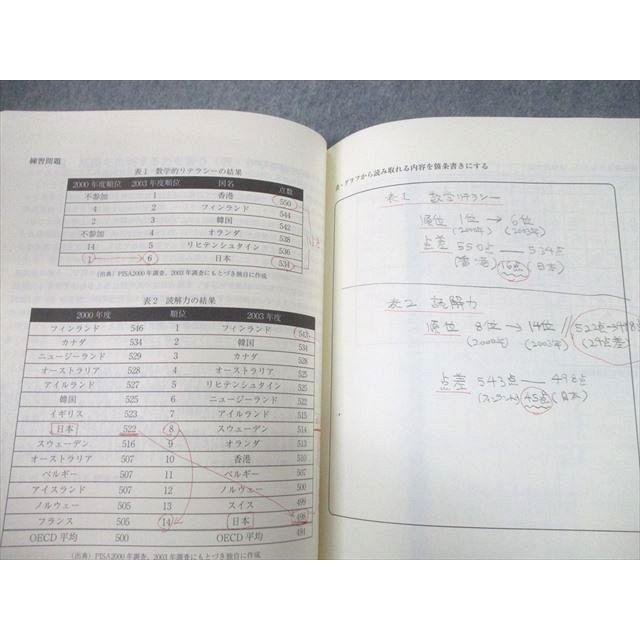 練習問題
表1 数学的リテラシーの結果
2000年度順位 2003年度順位 国名 点数
不参加 1 香港 550
4 2 フィンランド 544
2 3 韓国 542
不参加 4 オランダ 538
14 5 リヒテンシュタイン 536
1 6 日本 534
(出典)PISA2000年調査、2003年調査にもとづき独自に作成
表2 読解力の結果
2000年度 順位 2003年度
フィンランド 546 1 フィンランド 543
カナダ 534 2 韓国 534
ニュージーランド 529 3 カナダ 528
オーストラリア 528 4 オーストラリア 525
アイルランド 527 5 リヒテンシュタイン 525
韓国 525 6 ニュージーランド 522
イギリス 523 7 アイルランド 515
日本 522 8 スウェーデン 514
スウェーデン 516 9 オランダ 513
オーストラリア 507 10 香港 510
ベルギー 507 11 ベルギー 507
アイスランド 507 12 ノルウェー 500
ノルウェー 505 13 スイス 499
フランス 505 14 日本 498
OECD平均 500 OECD平均 494
(出典)PISA2000年調査、2003年調査にもとづき独自に作成
表・グラフから読み取れる内容を箇条書きにする
表1 数学リテラシー
順位 1位 → 6位
(2000年) (2003年)
点差 550点 — 534点
(香港) 16点 (日本)
表2 読解力
順位 8位 → 14位 // 522点→498点
(2000年) (2003年) (24点差)
点差 543点 — 498点
(フィンランド) 45点 (日本)